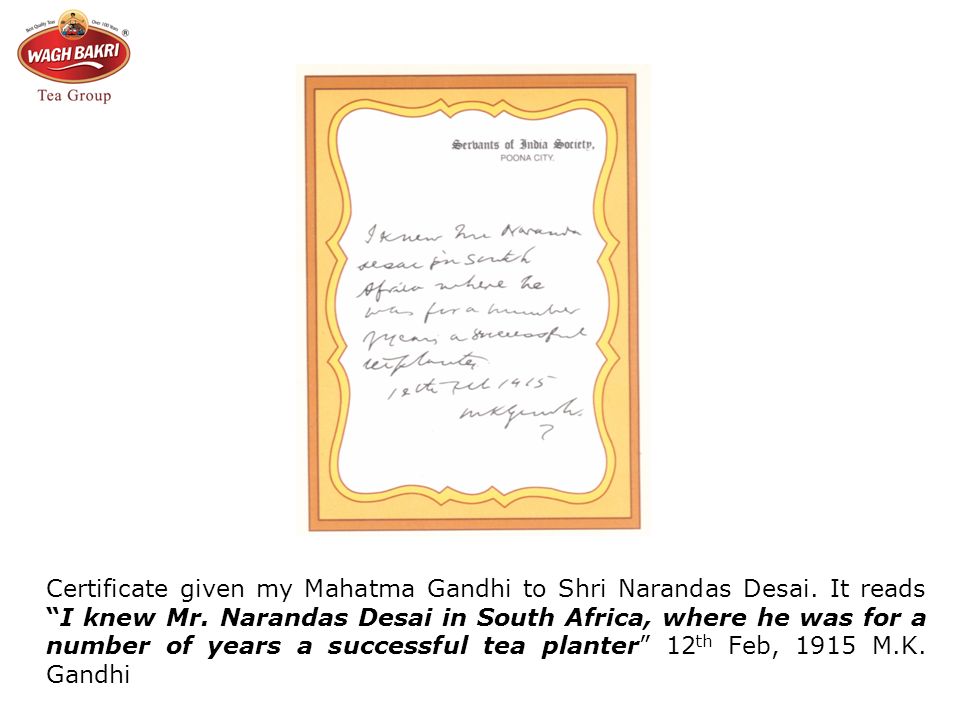 Best Quality Teas Over 100 Years
WAGH BAKRI ®
Tea Group
Servants of India Society,
POONA CITY.
I knew Mr Naranda
desai in South
Africa where he
was for a number
years a successful
teaplanter
12th Feb 1915
MKGandhi
Certificate given my Mahatma Gandhi to Shri Narandas Desai. It reads
“I knew Mr. Narandas Desai in South Africa, where he was for a
number of years a successful tea planter” 12th Feb, 1915 M.K.
Gandhi